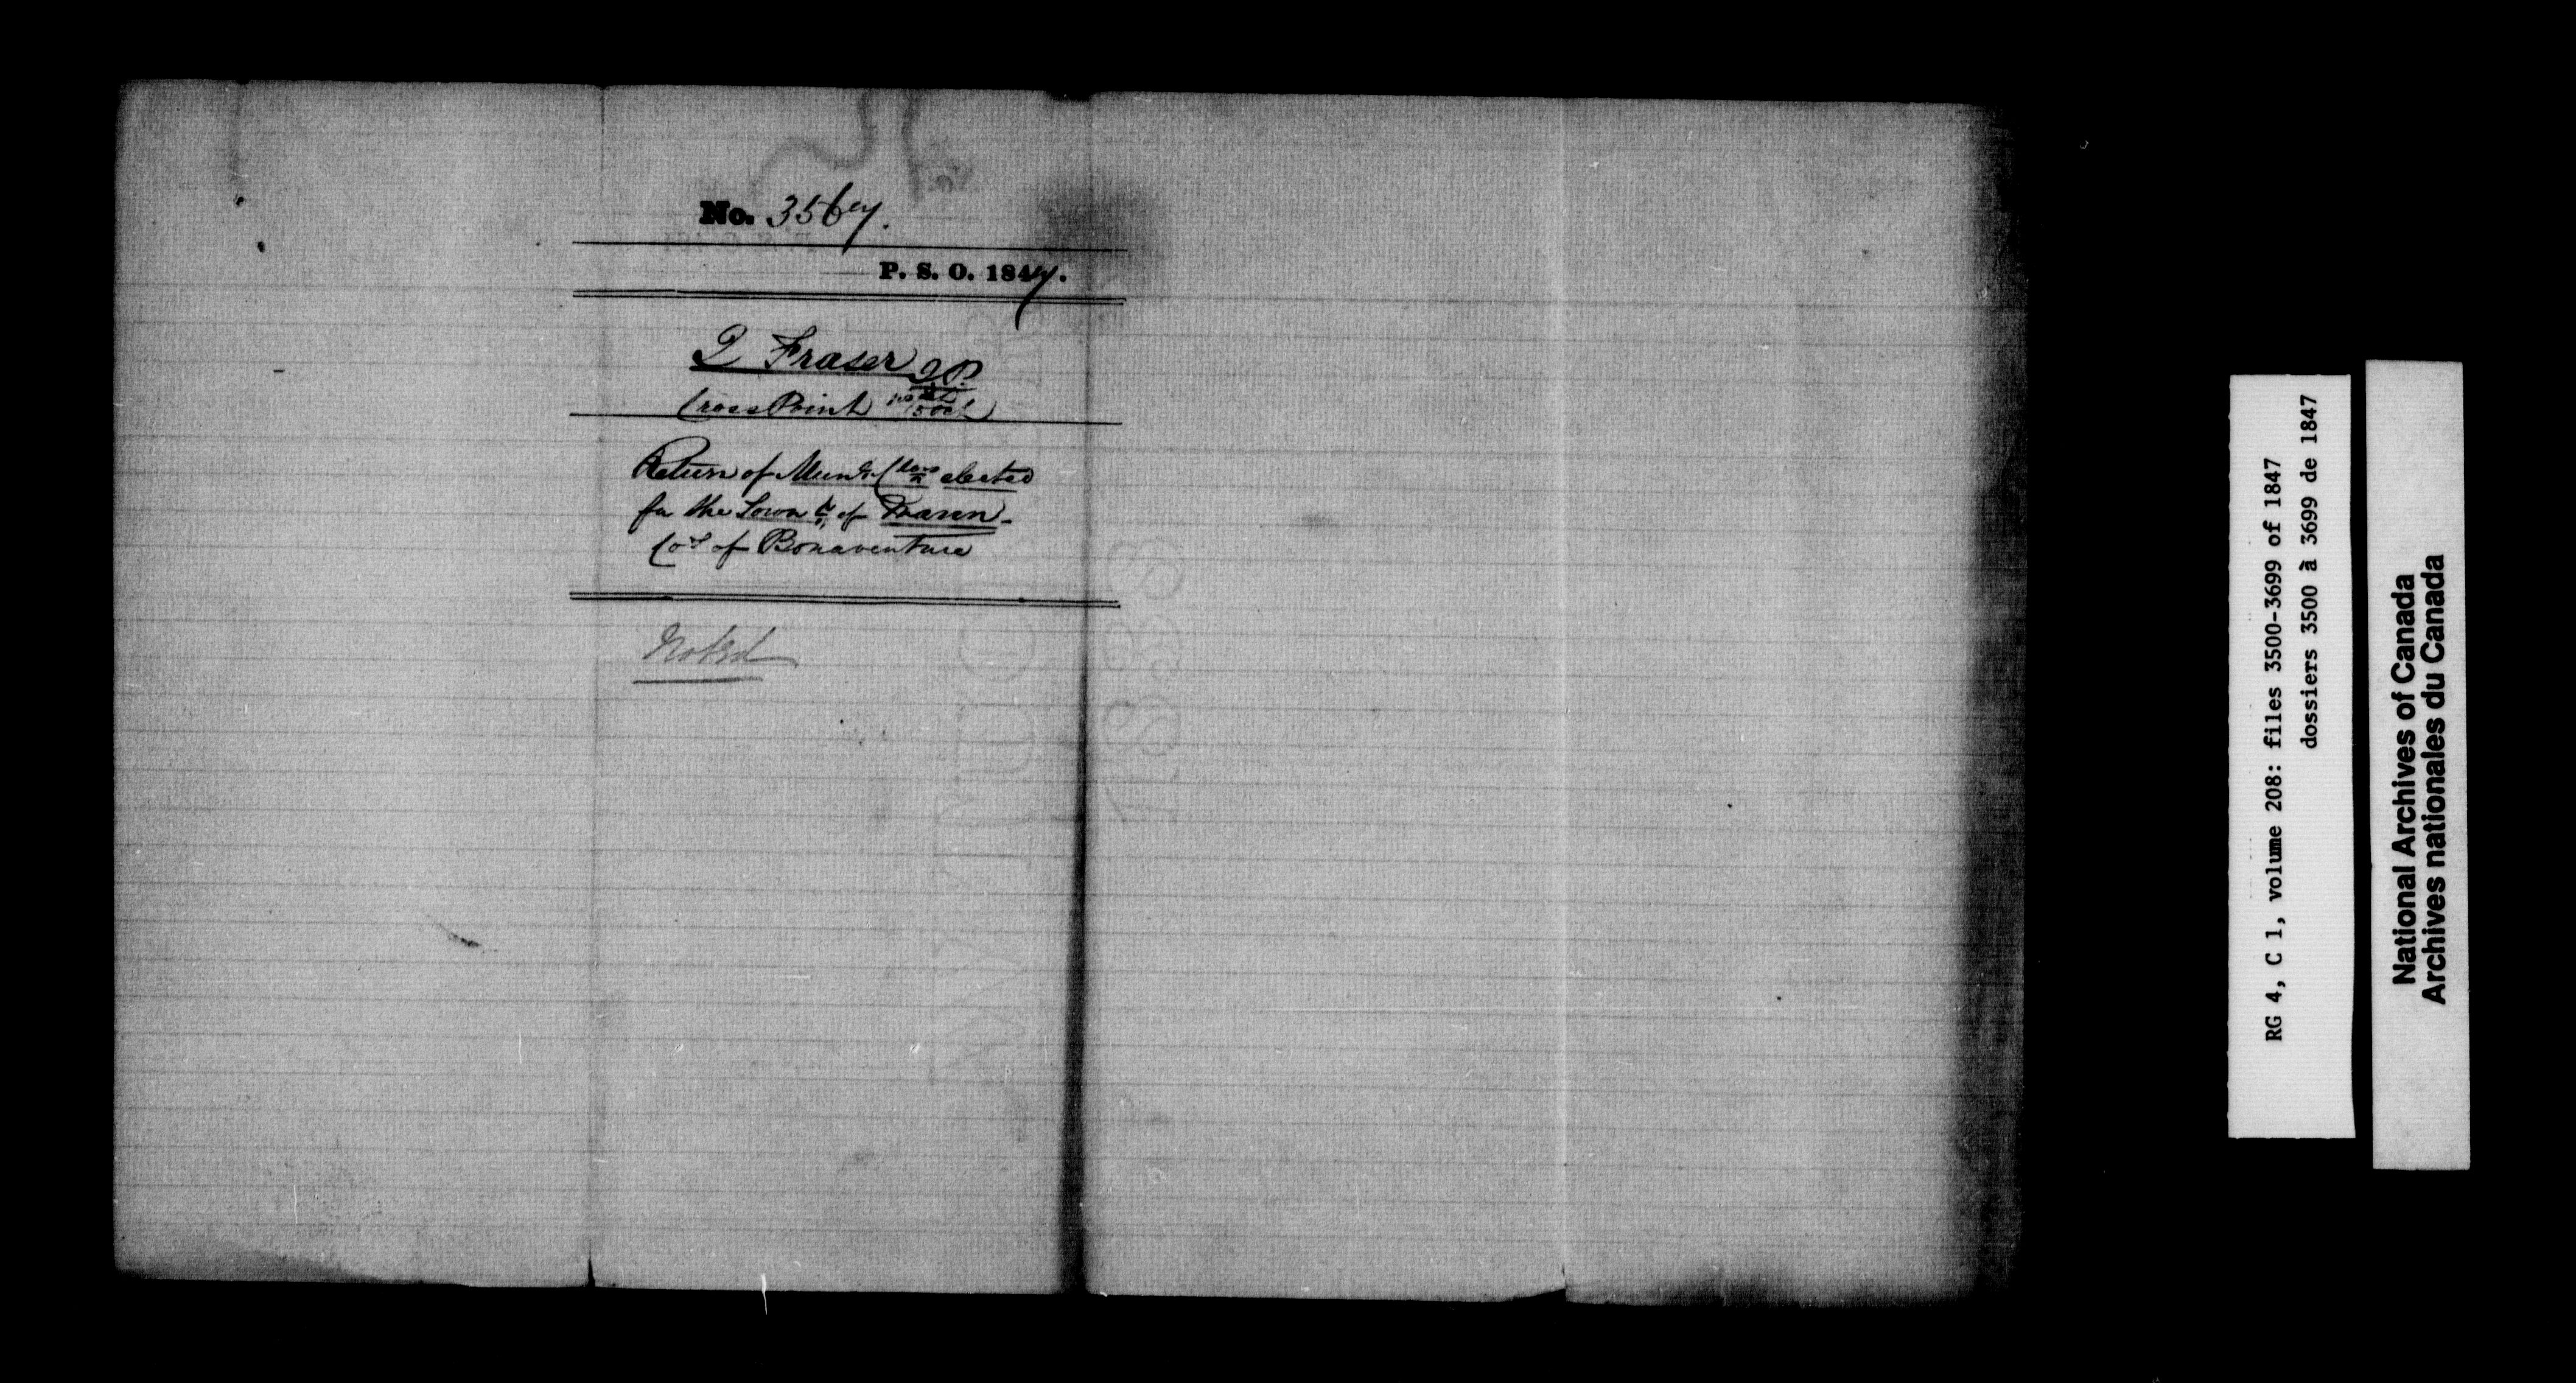 No. 3567.
P. S. O. 1847.
J Fraser JP.
Cross Point 15 Octr
Return of Munl. Cllors elected
for the Town p. of Mann.
Coy of Bonaventure
Noted
RG 4, C 1, volume 208: files 3500-3699 of 1847
dossiers 3500 à 3699 de 1847
National Archives of Canada
Archives nationales du Canada